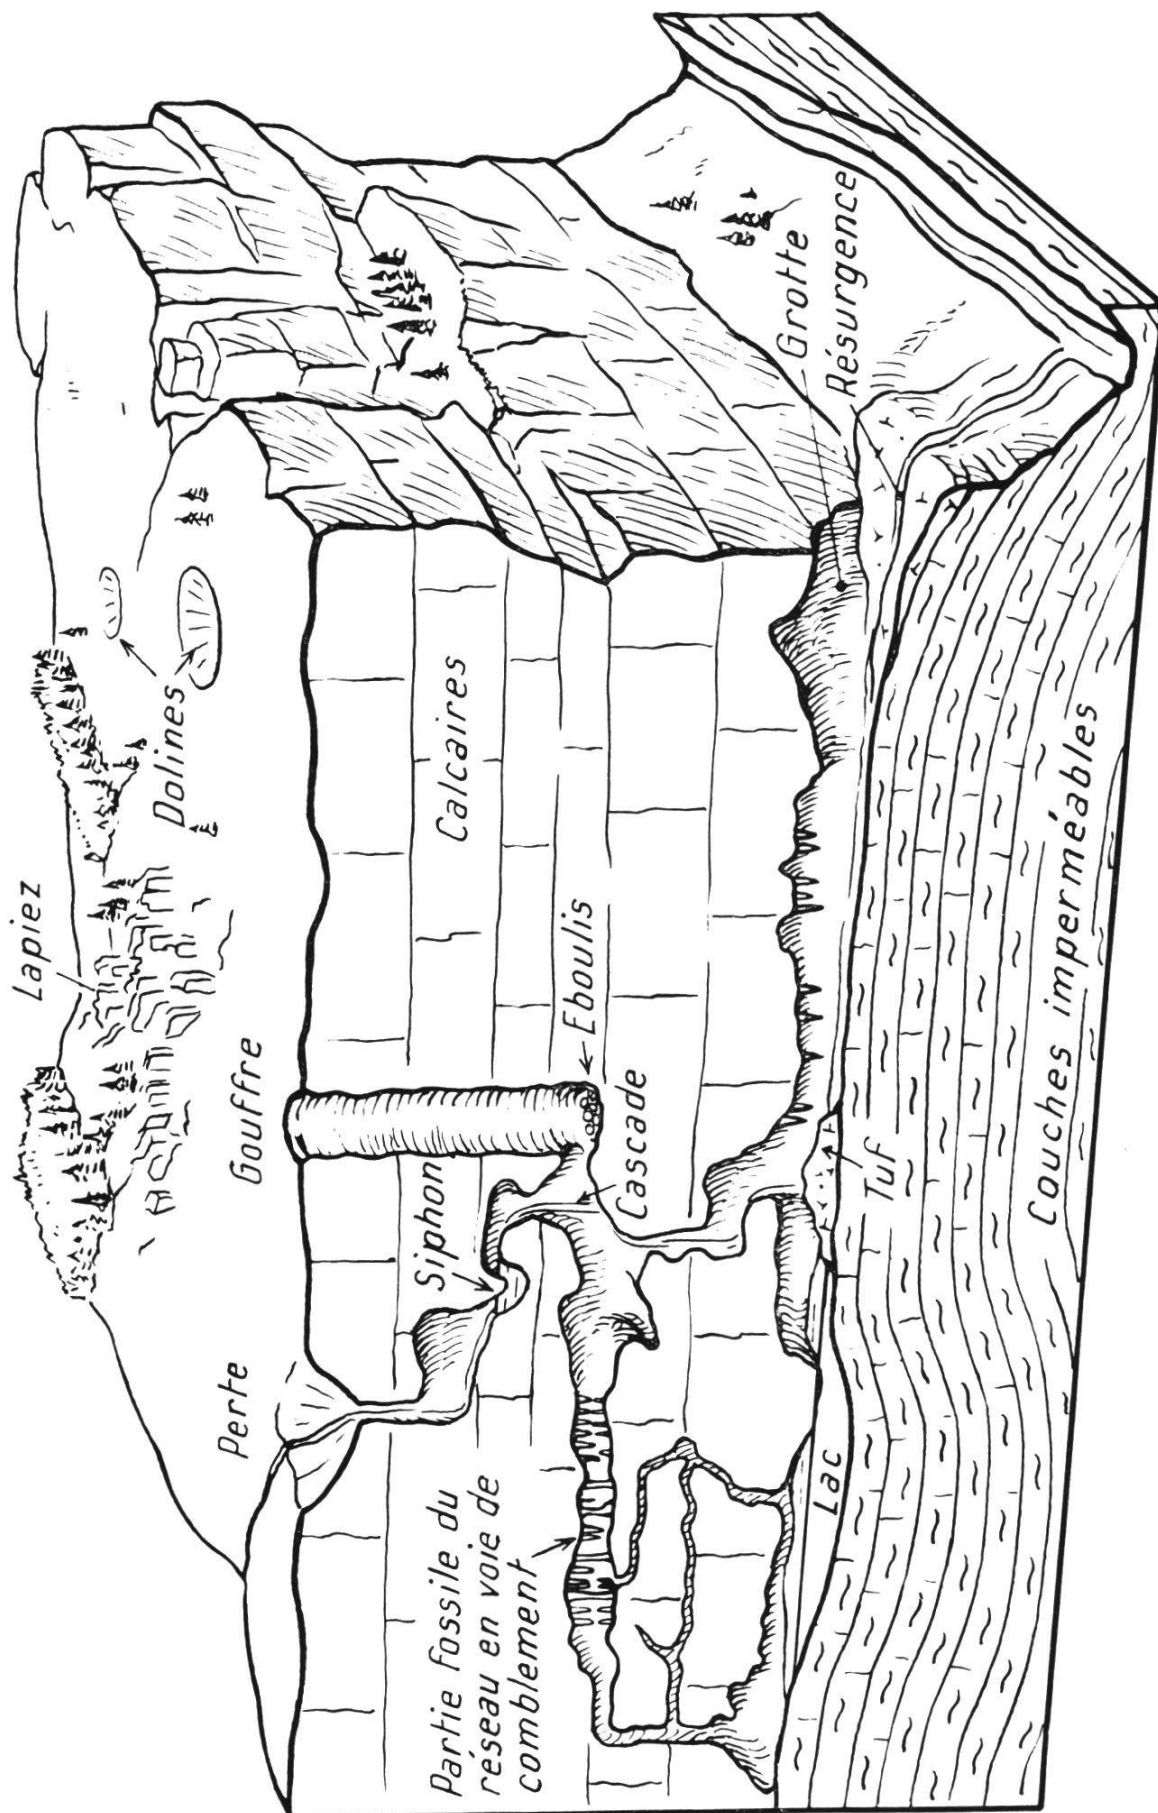 Lapiez
Dolines
Gouffre
Perte
Calcaires
Siphon
Eboulis
Cascade
Partie fossile du
réseau en voie de
comblement
Grotte
Résurgence
Lac
Tuf
Couches imperméables